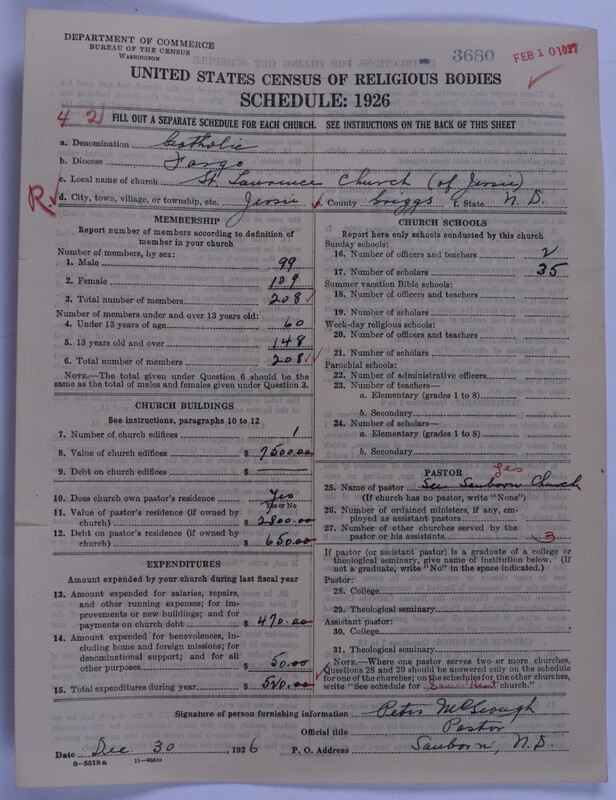 DEPARTMENT OF COMMERCE
BUREAU OF THE CENSUS
WASHINGTON
3680
FEB 10 1927
UNITED STATES CENSUS OF RELIGIOUS BODIES
SCHEDULE: 1926
4 2
FILL OUT A SEPARATE SCHEDULE FOR EACH CHURCH. SEE INSTRUCTIONS ON THE BACK OF THIS SHEET
a. Denomination Catholic
b. Diocese Fargo
c. Local name of church St. Lawrence Church (of Jessie)
R
d. City, town, village, or township, etc. Jessie e. County Griggs f. State N. D.
MEMBERSHIP
Report number of members according to definition of member in your church
Number of members, by sex:
1. Male 99
2. Female 109
3. Total number of members 208
Number of members under and over 13 years old:
4. Under 13 years of age 60
5. 13 years old and over 148
6. Total number of members 208
NOTE.—The total given under Question 6 should be the same as the total of males and females given under Question 3.
CHURCH BUILDINGS
See instructions, paragraphs 10 to 12
7. Number of church edifices 1
8. Value of church edifices $ 7500.00
9. Debt on church edifices $
10. Does church own pastor's residence Yes
Yes or No
11. Value of pastor's residence (if owned by church) $ 2800.00
12. Debt on pastor's residence (if owned by church) $ 650.00
EXPENDITURES
Amount expended by your church during last fiscal year
13. Amount expended for salaries, repairs, and other running expenses; for improvements or new buildings; and for payments on church debt $ 470.00
14. Amount expended for benevolences, including home and foreign missions; for denominational support; and for all other purposes $ 50.00
15. Total expenditures during year $ 520.00
CHURCH SCHOOLS
Report here only schools conducted by this church
Sunday schools:
16. Number of officers and teachers 2
17. Number of scholars 35
Summer vacation Bible schools:
18. Number of officers and teachers
19. Number of scholars
Week-day religious schools:
20. Number of officers and teachers
21. Number of scholars
Parochial schools:
22. Number of administrative officers
23. Number of teachers—
a. Elementary (grades 1 to 8)
b. Secondary
24. Number of scholars—
a. Elementary (grades 1 to 8)
b. Secondary
PASTOR yes
25. Name of pastor See Sanborn Church
(If church has no pastor, write "None")
26. Number of ordained ministers, if any, employed as assistant pastors
27. Number of other churches served by the pastor or his assistants 3
If pastor (or assistant pastor) is a graduate of a college or theological seminary, give name of institution below. (If not a graduate, write "No" in the space indicated.)
Pastor:
28. College
29. Theological seminary
Assistant pastor:
30. College
31. Theological seminary
NOTE.—Where one pastor serves two or more churches, Questions 28 and 29 should be answered only on the schedule for one of the churches; on the schedules for the other churches, write "See schedule for Sacred Heart church."
Signature of person furnishing information Peter McGeough
Official title Pastor
Date Dec. 30, 1926 P. O. Address Sanborn, N. D.
8—5518 a